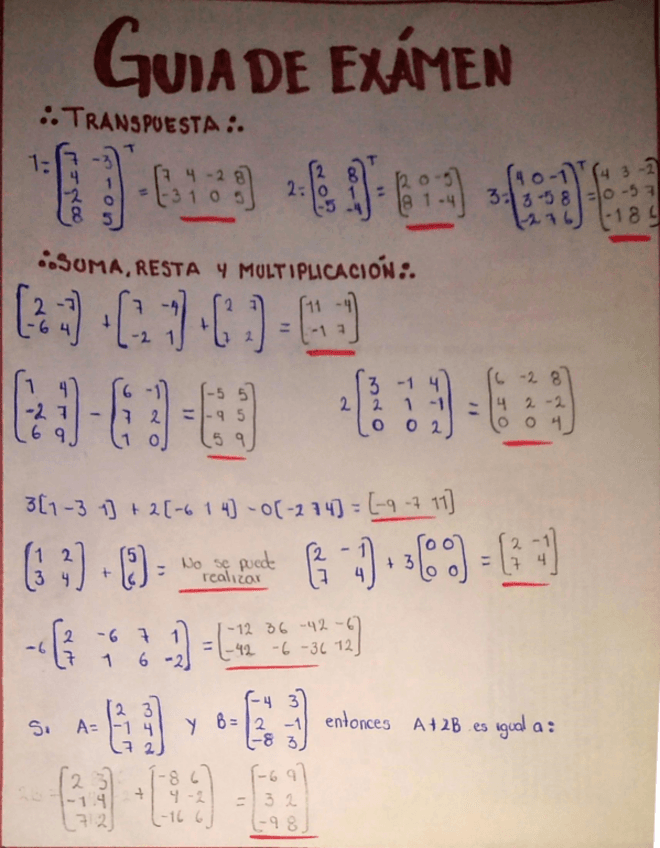 GUIA DE EXÁMEN
∴ TRANSPUESTA ∴
1= [7 -3; 4 1; -2 0; 8 5]ᵀ = [7 4 -2 8; -3 1 0 5] 2= [2 8; 0 1; -5 -4]ᵀ = [2 0 -5; 8 1 -4] 3= [4 0 -1; 3 -5 8; -2 7 6]ᵀ = [4 3 -2; 0 -5 7; -1 8 6]
∴ SUMA, RESTA Y MULTIPLICACIÓN ∴
[2 -7; -6 4] + [7 -4; -2 1] + [2 7; 7 2] = [11 -4; -1 7]
[1 4; -2 7; 6 9] - [6 -1; 7 2; 1 0] = [-5 5; -9 5; 5 9] 2 [3 -1 4; 2 1 -1; 0 0 2] = [6 -2 8; 4 2 -2; 0 0 4]
3[1 -3 1] + 2[-6 1 4] - 0[-2 7 4] = [-9 -7 11]
[1 2; 3 4] + [5; 6] = No se puede realizar [2 -1; 7 4] + 3 [0 0; 0 0] = [2 -1; 7 4]
-6 [2 -6 7 1; 7 1 6 -2] = [-12 36 -42 -6; -42 -6 -36 12]
Si A= [2 3; -1 4; 7 2] y B= [-4 3; 2 -1; -8 3] entonces A+2B es igual a:
[2 3; -1 4; 7 2] + [-8 6; 4 -2; -16 6] = [-6 9; 3 2; -9 8]